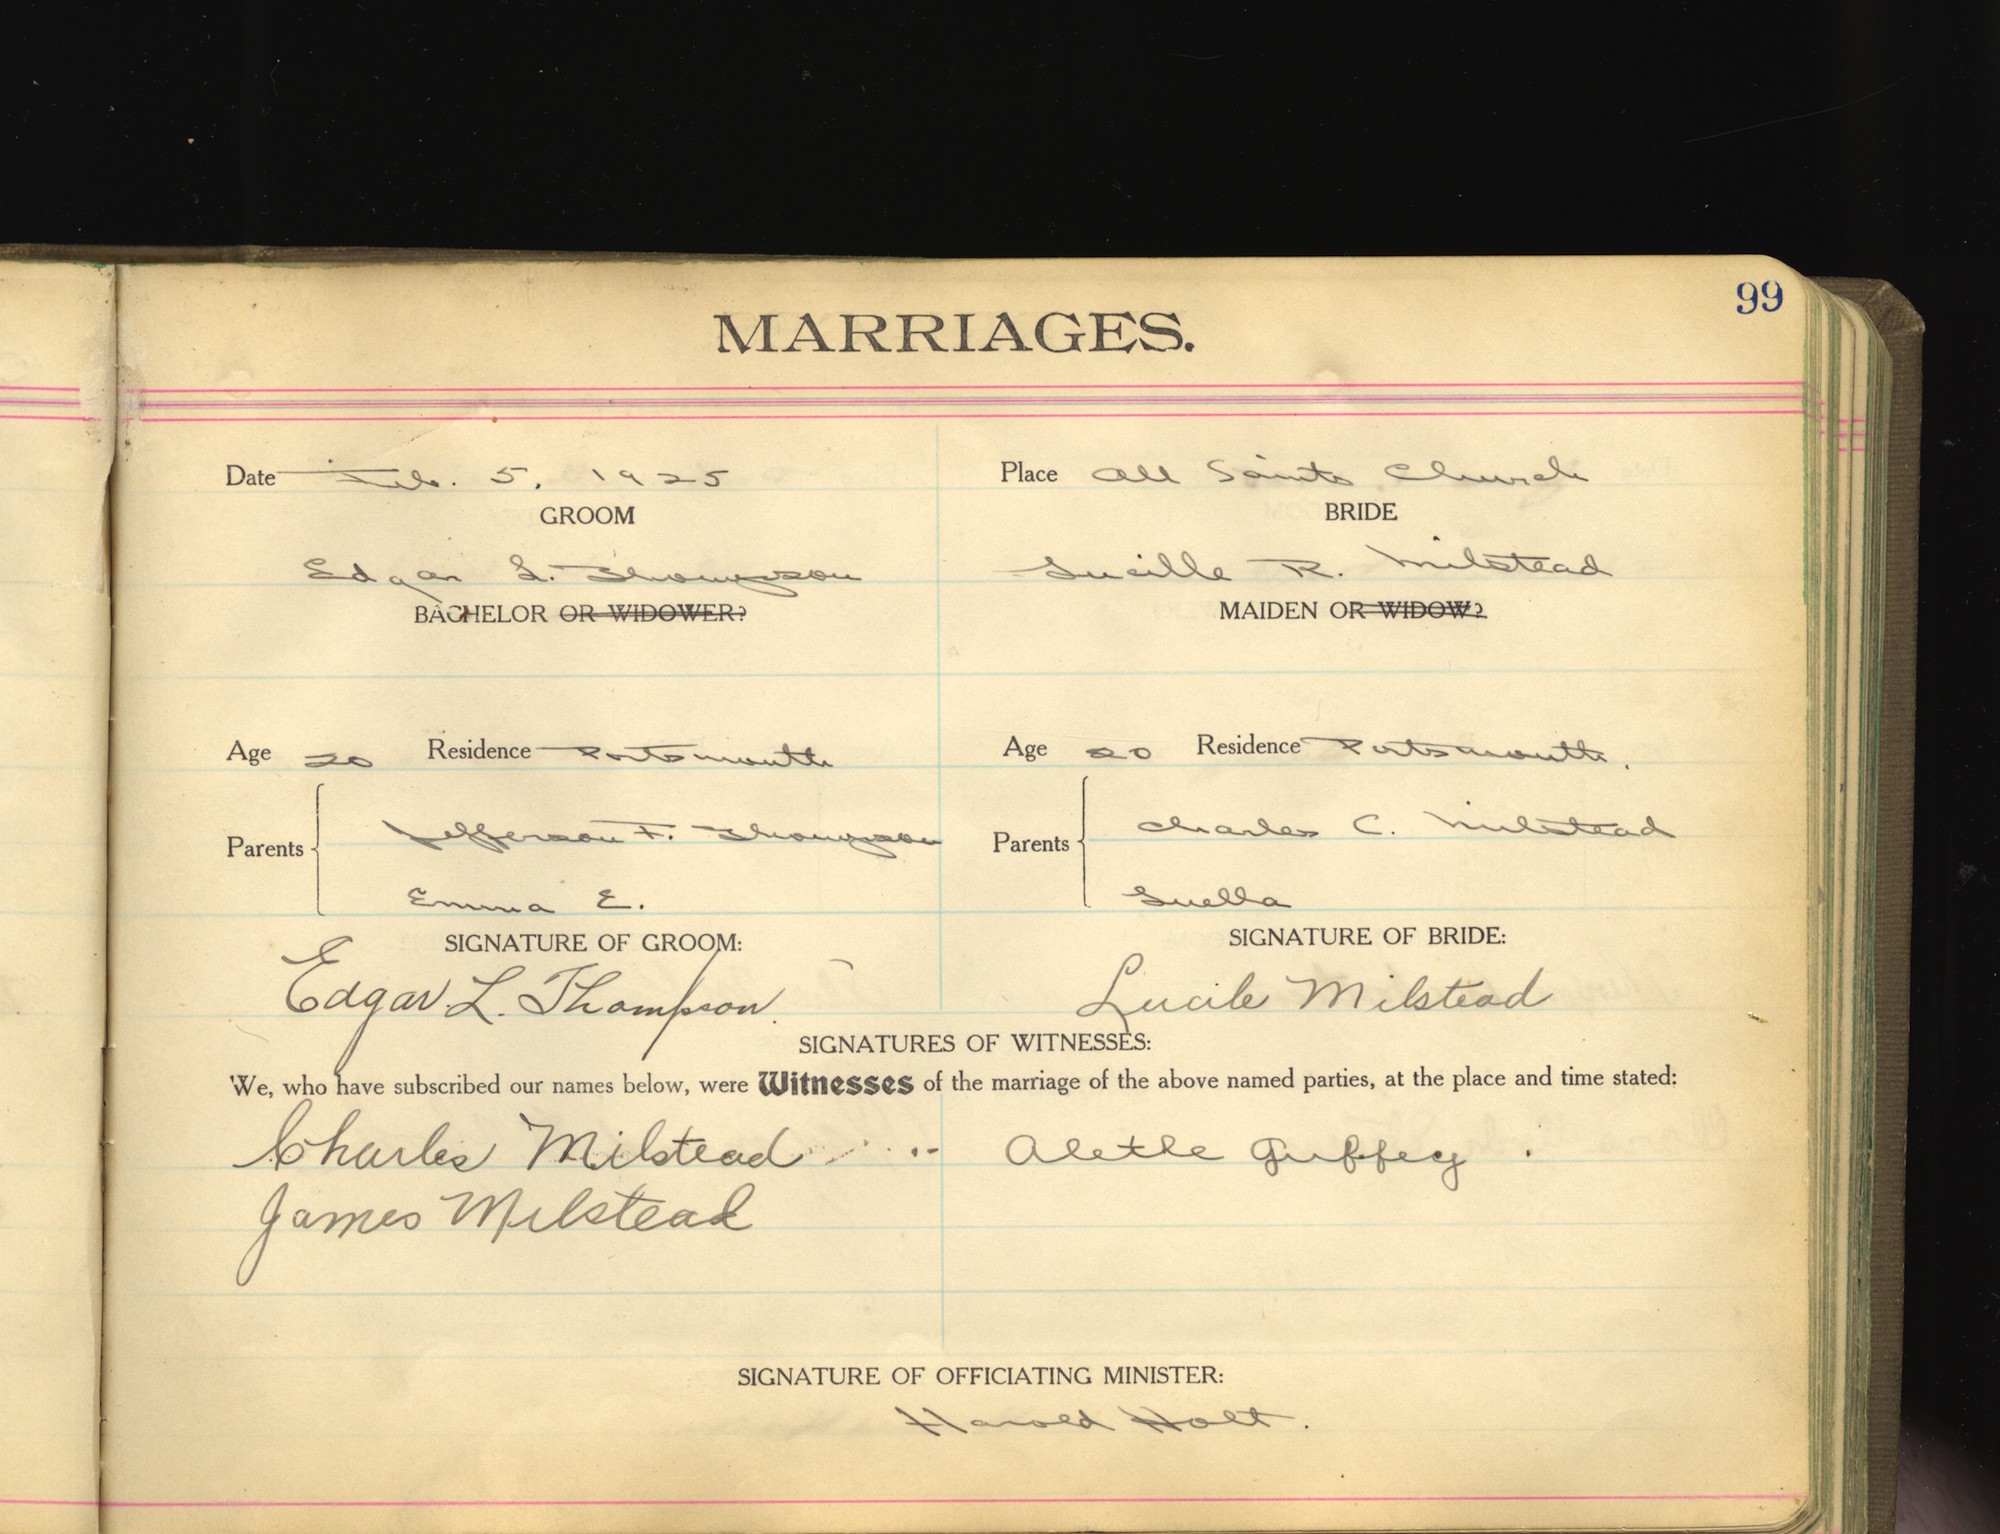 99
MARRIAGES.
Date Feb. 5, 1925 Place All Saints Church
GROOM BRIDE
Edgar L. Thompson Lucille R. Milstead
BACHELOR OR WIDOWER? MAIDEN OR WIDOW?
Age 20 Residence Portsmouth Age 20 Residence Portsmouth.
Parents Jefferson F. Thompson Parents Charles C. Milstead
Emma E. Luella
SIGNATURE OF GROOM: SIGNATURE OF BRIDE:
Edgar L. Thompson. Lucile Milstead
SIGNATURES OF WITNESSES:
We, who have subscribed our names below, were Witnesses of the marriage of the above named parties, at the place and time stated:
Charles Milstead Alethe Guffey
James Milstead
SIGNATURE OF OFFICIATING MINISTER:
Harold Holt.